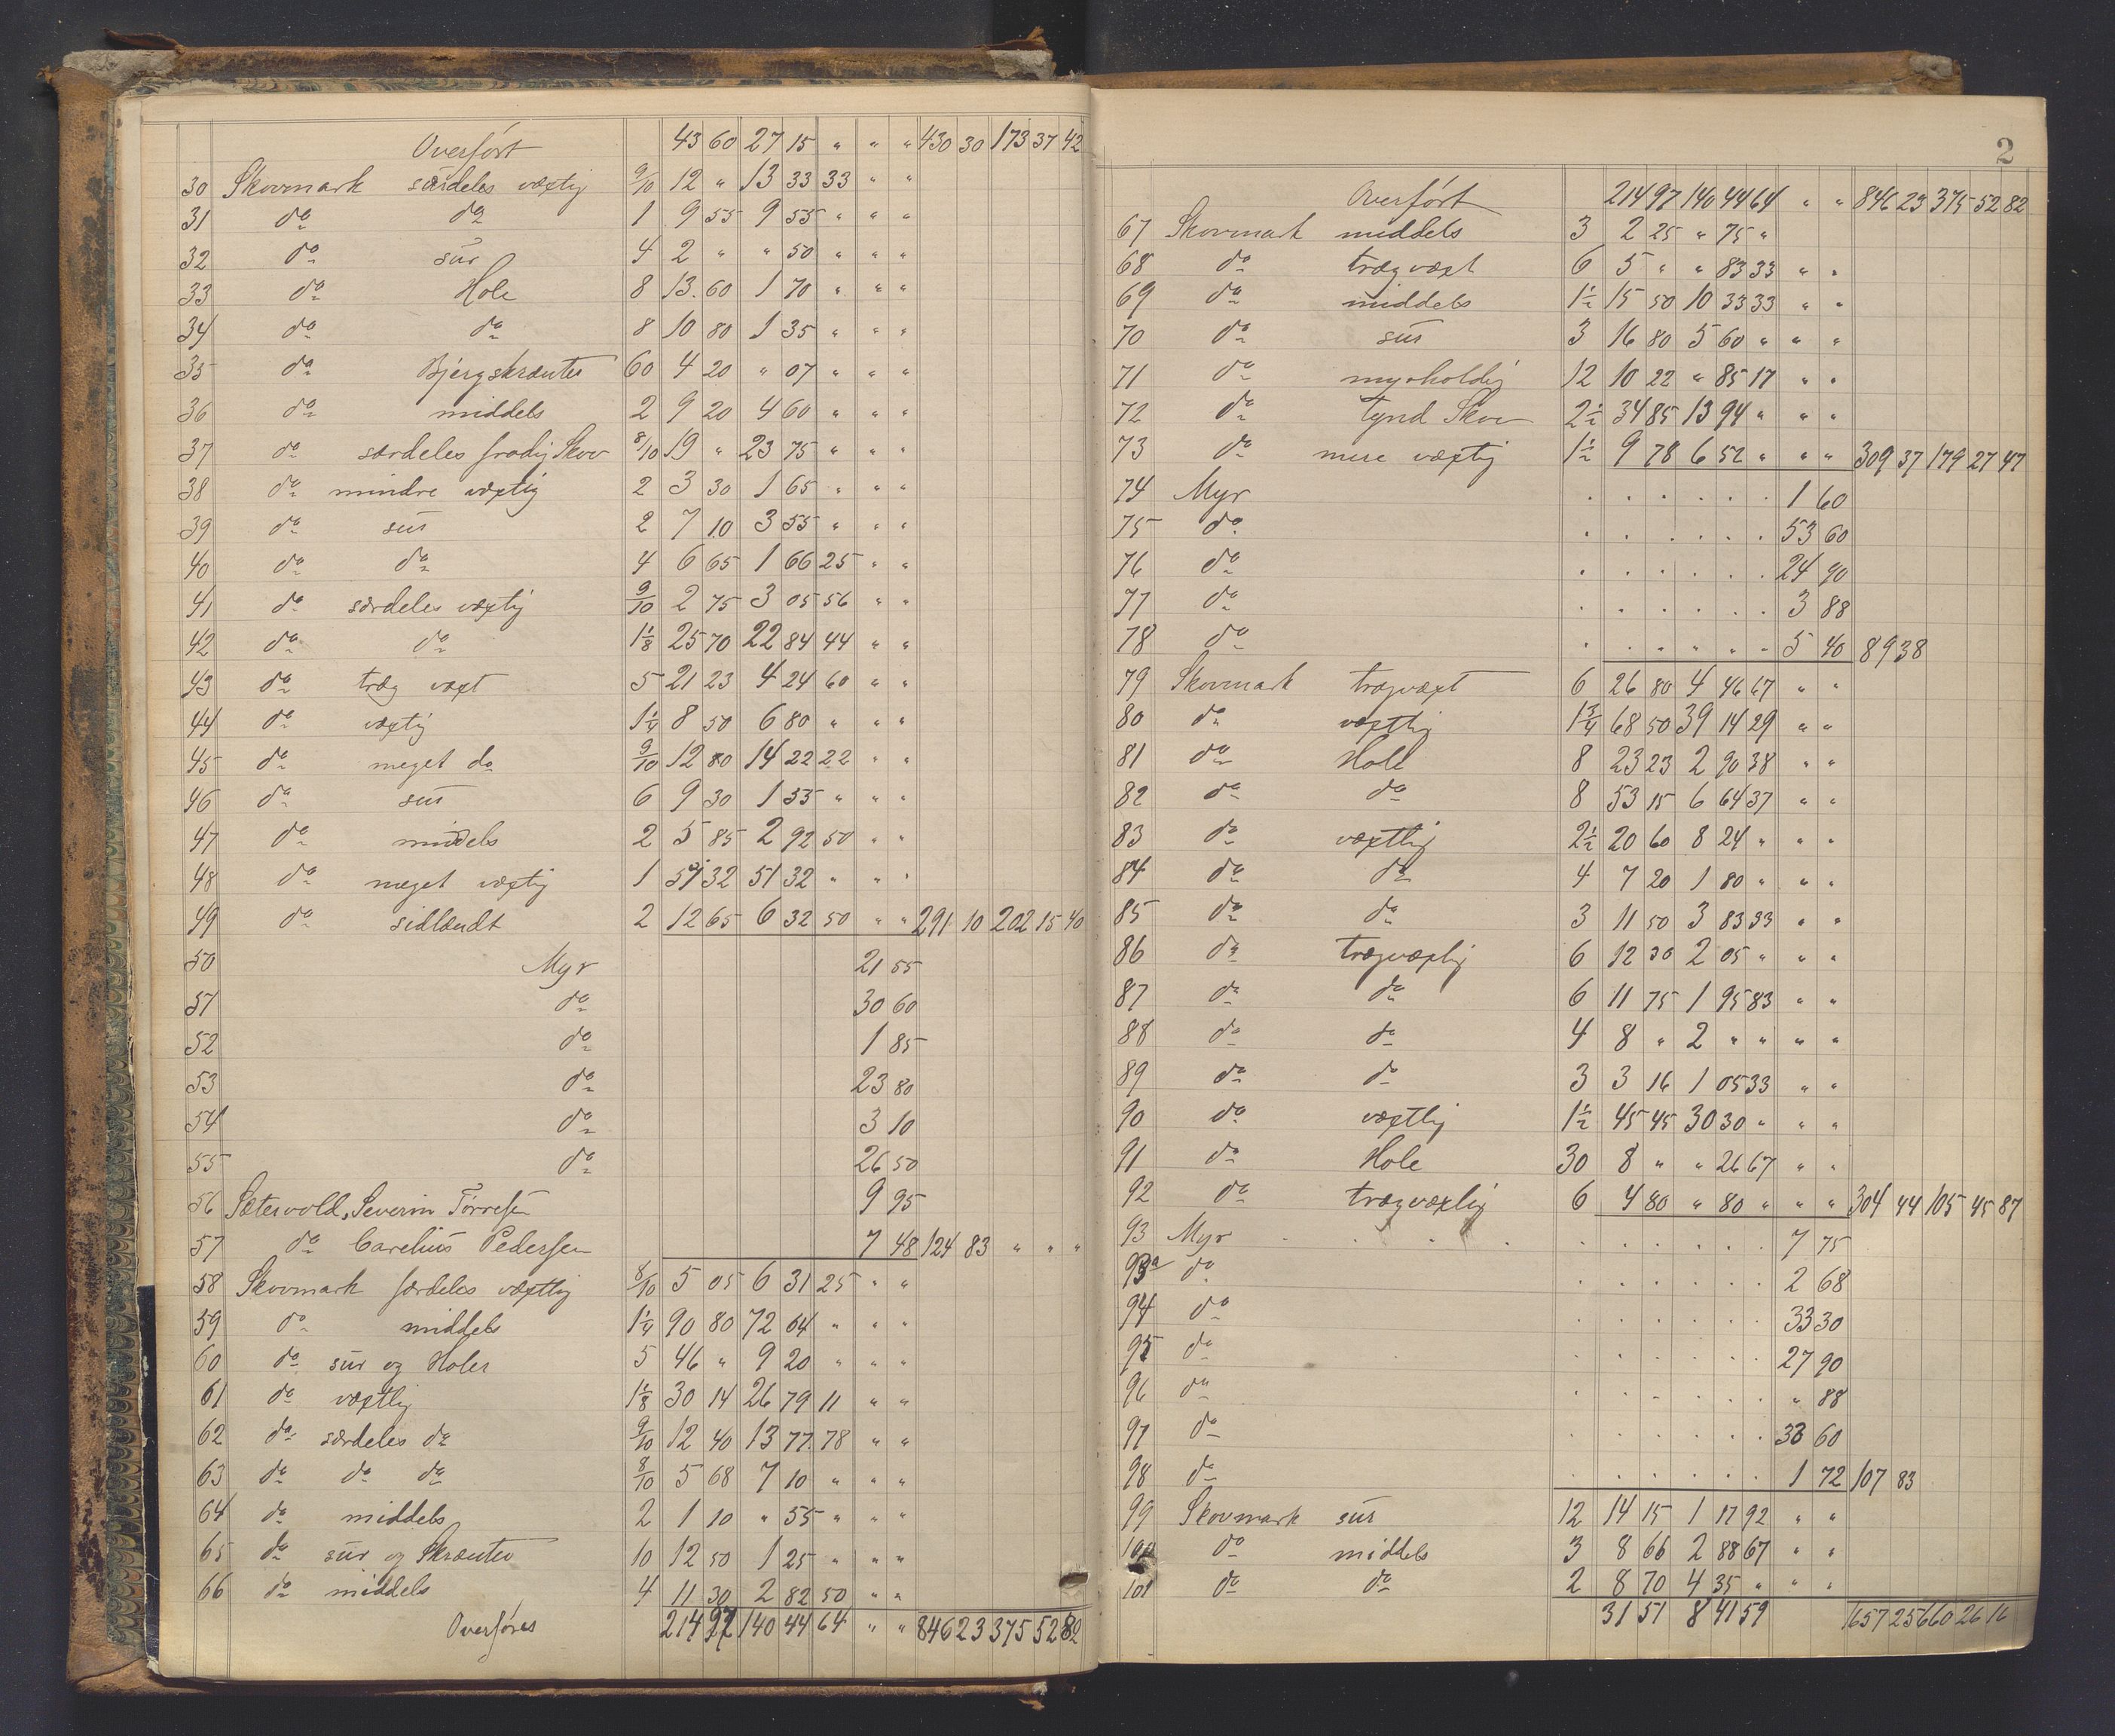 Overført 43 60 27 15 " " " 430 30 173 37 42
30 Skovmark særdeles væxtlig 9/10 12 " 13 33 33 " "
31 do do 1 9 55 9 55 " " "
32 do sur 4 2 " " 50 " " "
33 do Hole 8 13 60 1 70 " " "
34 do do 8 10 80 1 35 " " "
35 do Bjergskrænter 60 4 20 " 07 " " "
36 do middels 2 9 20 4 60 " " "
37 do særdeles frodig Skov 8/10 19 " 23 75 " " "
38 do mindre væxtig 2 3 30 1 65 " " "
39 do sur 2 7 10 3 55 " " "
40 do do 4 6 65 1 66 25 " "
41 do særdeles væxtig 9/10 2 75 3 05 56 " "
42 do do 1 1/8 25 70 22 84 44 " "
43 do træg væxt 5 21 23 4 24 60 " "
44 do væxtig 1 1/4 8 50 6 80 " " "
45 do meget do 9/10 12 80 14 22 22 " "
46 do sur 6 9 30 1 55 " " "
47 do middels 2 5 85 2 92 50 " "
48 do meget væxtig 1 51 32 51 32 " " "
49 do sidlændt 2 12 65 6 32 50 " " 291 10 202 15 40
50 Myr 21 55
51 do 30 60
52 do 1 85
53 do 23 80
54 do 3 10
55 do 26 50
56 Sætervold, Severin Tørresen 9 95
57 do Carelius Pedersen 7 48 124 83 " " "
58 Skovmark særdeles væxtlig 8/10 5 05 6 31 25 " "
59 do middels 1 1/4 90 80 72 64 " " "
60 do sur og Holer 5 46 " 9 20 " " "
61 do væxtlig 1 1/8 30 14 26 79 11 " "
62 do særdeles do 9/10 12 40 13 77 78 " "
63 do do do 8/10 5 68 7 10 " " "
64 do middels 2 1 10 " 55 " " "
65 do sur og Skrænter 10 12 50 1 25 " " "
66 do middels 4 11 30 2 82 50 " "
Overføres 214 97 140 44 64 " " 846 23 375 52 82
2
Overført 214 97 140 44 64 " " 846 23 375 52 82
67 Skovmark middels 3 2 25 " 75 "
68 do trægvæxt 6 5 " " 83 33 " "
69 do middels 1 1/2 15 50 10 33 33 " "
70 do sur 3 16 80 5 60 " " "
71 do myrholdig 12 10 22 " 85 17 " "
72 do Tynd Skov 2 1/2 34 85 13 94 " " "
73 do mere væxtig 1 1/2 9 78 6 52 " " " 309 37 179 27 47
74 Myr . . . . . . 1 60
75 do . . . . . . 53 60
76 do . . . . . . 24 90
77 do . . . . . . 3 88
78 do . . . . . . 5 40 89 38
79 Skovmark trægvæxt 6 26 80 4 46 67 " "
80 do væxtlig 1 3/4 68 50 39 14 29 " "
81 do Hole 8 23 23 2 90 38 " "
82 do do 8 53 15 6 64 37 " "
83 do væxtlig 2 1/2 20 60 8 24 " " "
84 do do 4 7 20 1 80 " " "
85 do do 3 11 50 3 83 33 " "
86 do trægvæxtig 6 12 30 2 05 " " "
87 do do 6 11 75 1 95 83 " "
88 do do 4 8 " 2 " " " "
89 do do 3 3 16 1 05 33 " "
90 do væxtlig 1 1/2 45 45 30 30 " " "
91 do Hole 30 8 " " 26 67 " "
92 do trægvæxlig 6 4 80 " 80 " " " 304 44 105 45 87
93 Myr . . . . . . 7 75
93a do . . . . . . 2 68
94 do . . . . . . 33 30
95 do . . . . . . 27 90
96 do . . . . . . " 88
97 do . . . . . . 33 60
98 do . . . . . . 1 72 107 83
99 Skovmark sur 12 14 15 1 17 92 " "
100 do middels 3 8 66 2 88 67 " "
101 do do 2 8 70 4 35 " " "
31 51 8 41 59 1657 25 660 26 16